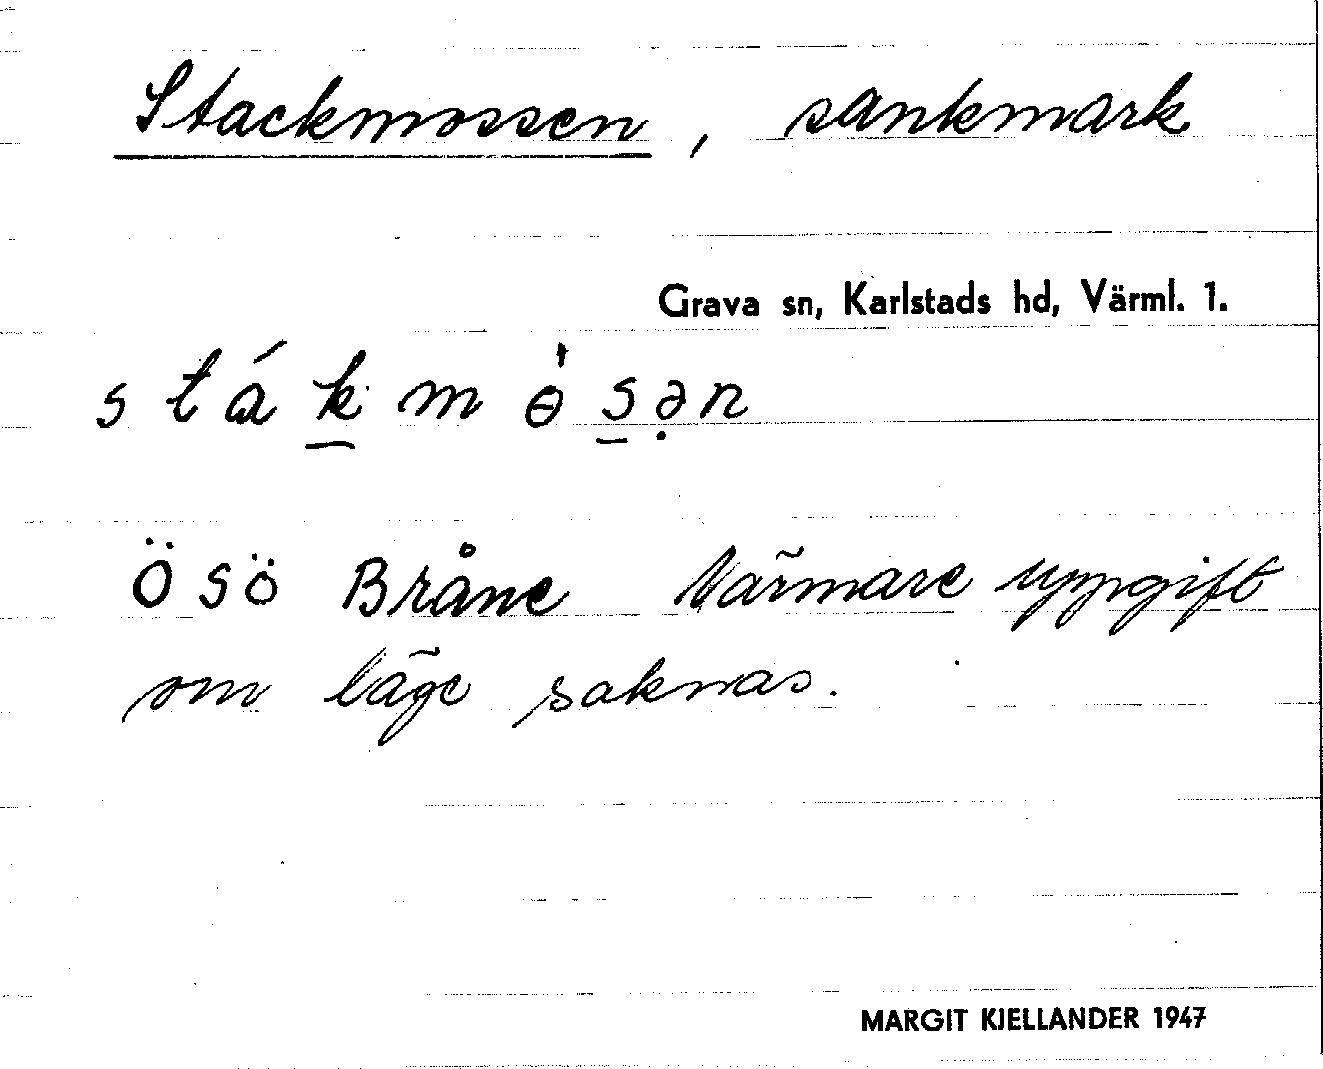 Stackmossen, sankmark
Grava sn, Karlstads hd, Värml. 1.
sták̠mɵ̀s̠ə̣n
Ö SÖ Bråne Närmare uppgift
om läge saknas.
MARGIT KJELLANDER 1947